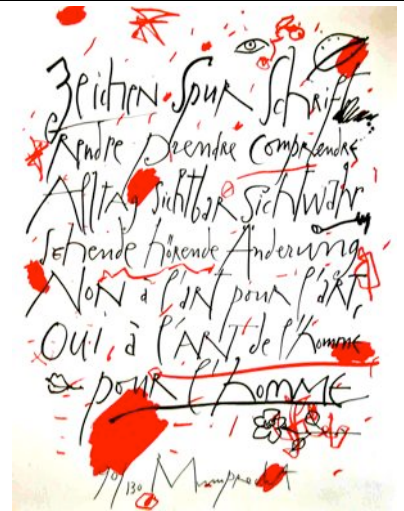 Zeichen Spur Schrift
Rendre prendre comprendre
Alltag sichtbar sichtwahr
Sehende hörende Änderung
Non à l'art pour l'art,
Oui, à l'ART de l'homme
pour l'homme
Mumprecht